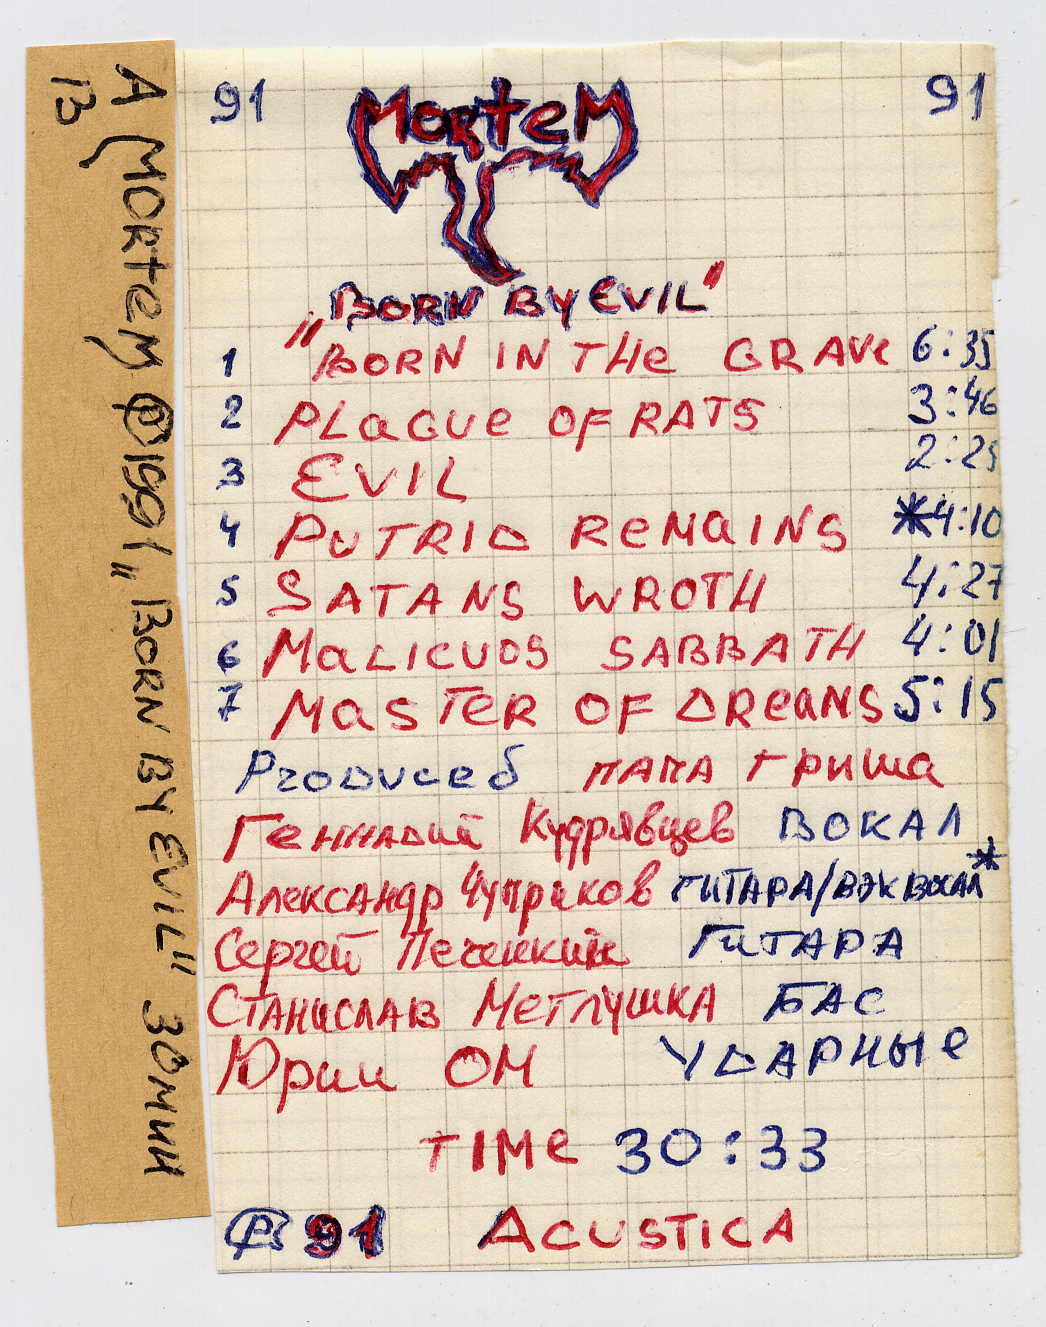 A
B
MORTeM ℗1991 „BORN BY EVIL" 30 МИН
91
MORTeM
91
„BORN BY EVIL"
1 BORN IN THe GRAVe 6:35
2 PLaGUe OF RATS 3:46
3 EVIL 2:25
4 PUTRID ReMaINS *4:10
5 SATANS WROTH 4:27
6 MaLICUOS SABBATH 4:01
7 MaSTeR OF DReaNS 5:15
Produced папа Гриша
Геннадий Кудрявцев ВОКАЛ
Александр Чупраков ГИТАРА/ВЭК ВОКАЛ*
Сергей Печенкин ГИТАРА
Станислав Метлушка БАС
Юрии ОМ УДАРНЫе
TIMe 30:33
℗ 91 ACUSTICA